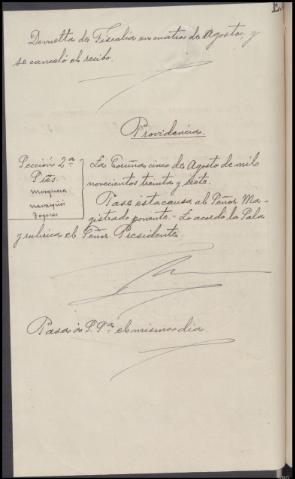 Devuelta de Fiscalia en cuatro de Agosto y
se canceló el recibo.
Providencia.
Sección 2ª
Sres.
Mosquera
La Coruña cinco de Agosto de mil
novecientos treinta y siete.
Pase esta causa al Señor Ma-
gistrado ponente.- Lo acordo la Sala
y rubrica el Señor Presidente.
Pasa á S. Sª el mismo dia